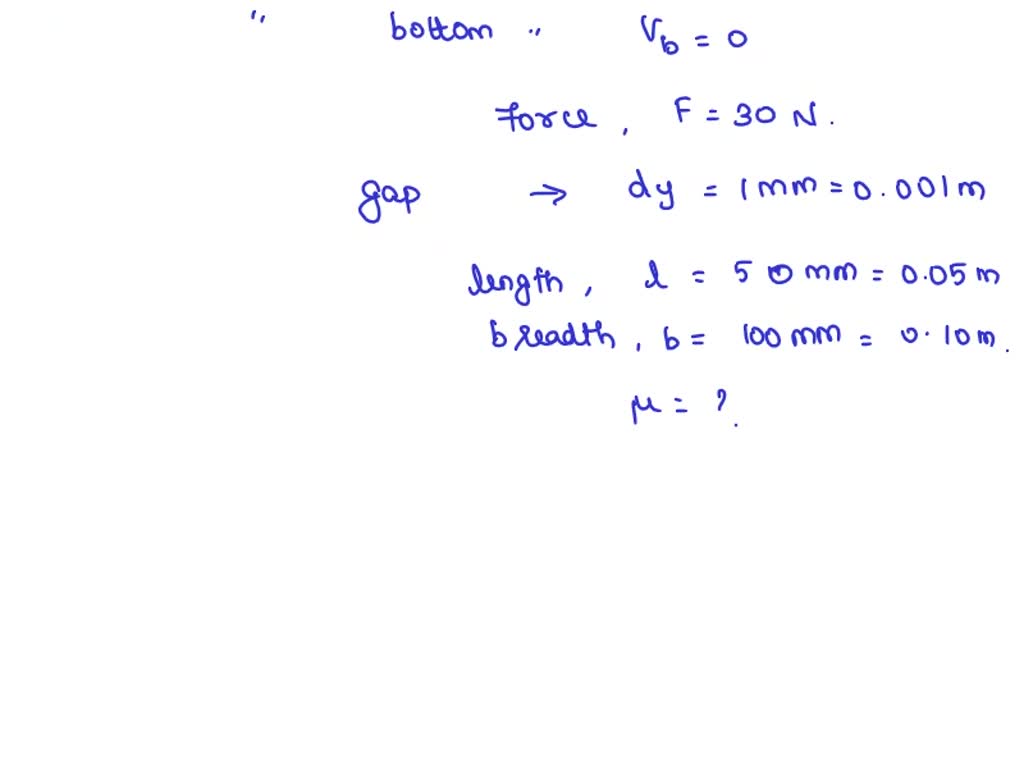 " bottom " V_b = 0
Force, F = 30 N.
gap → dy = 1 mm = 0.001 m
length, l = 50 mm = 0.05 m
breadth, b = 100 mm = 0.10 m.
μ = ?.